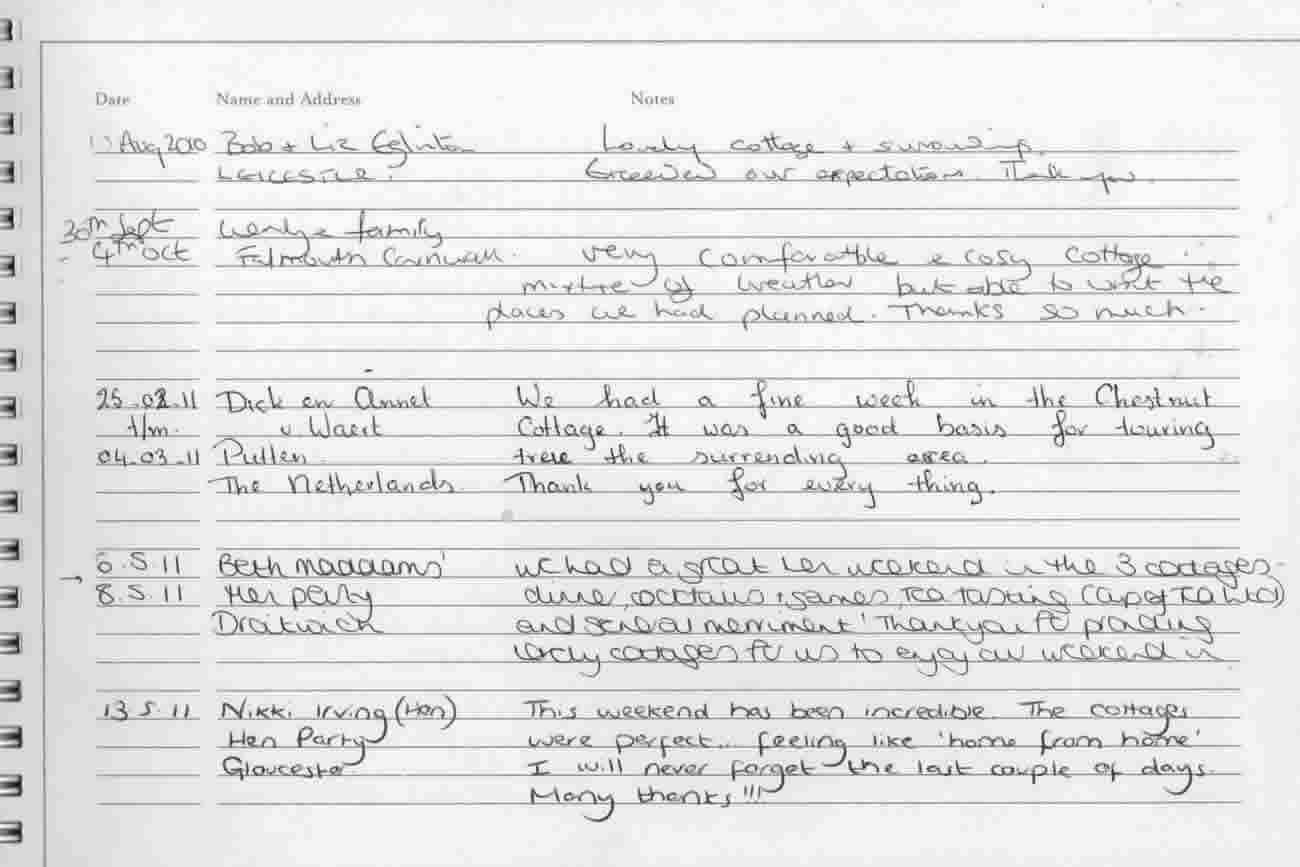 Date Name and Address Notes
Aug 2010 Bob + Liz Eglinton Lovely cottage + surroundings.
LEICESTER. Exceeded our expectations. Thank you.
30th Sept family
4th Oct Falmouth Cornwall. very comfortable & cosy cottage.
mixture of weather but able to visit the
places we had planned. Thanks so much.
25.02.11 Dick en Annel We had a fine week in the Chestnut
t/m. v. Waert Cottage. It was a good basis for touring
04.03.11 Putten. the surrending area.
The Netherlands. Thank you for every thing.
6.5.11 Beth maddams' we had a great hen weekend in the 3 cottages -
→ 8.5.11 Hen party cocktails, games, tea tasting (cup of TEA LTD)
Droitwich and general merriment! Thankyou for providing
lovely cottages for us to enjoy our weekend in.
13.5.11 Nikki Irving (Hen) This weekend has been incredible. The cottages
Hen Party were perfect... feeling like 'home from home'
Gloucester I will never forget the last couple of days.
Many thanks!!!